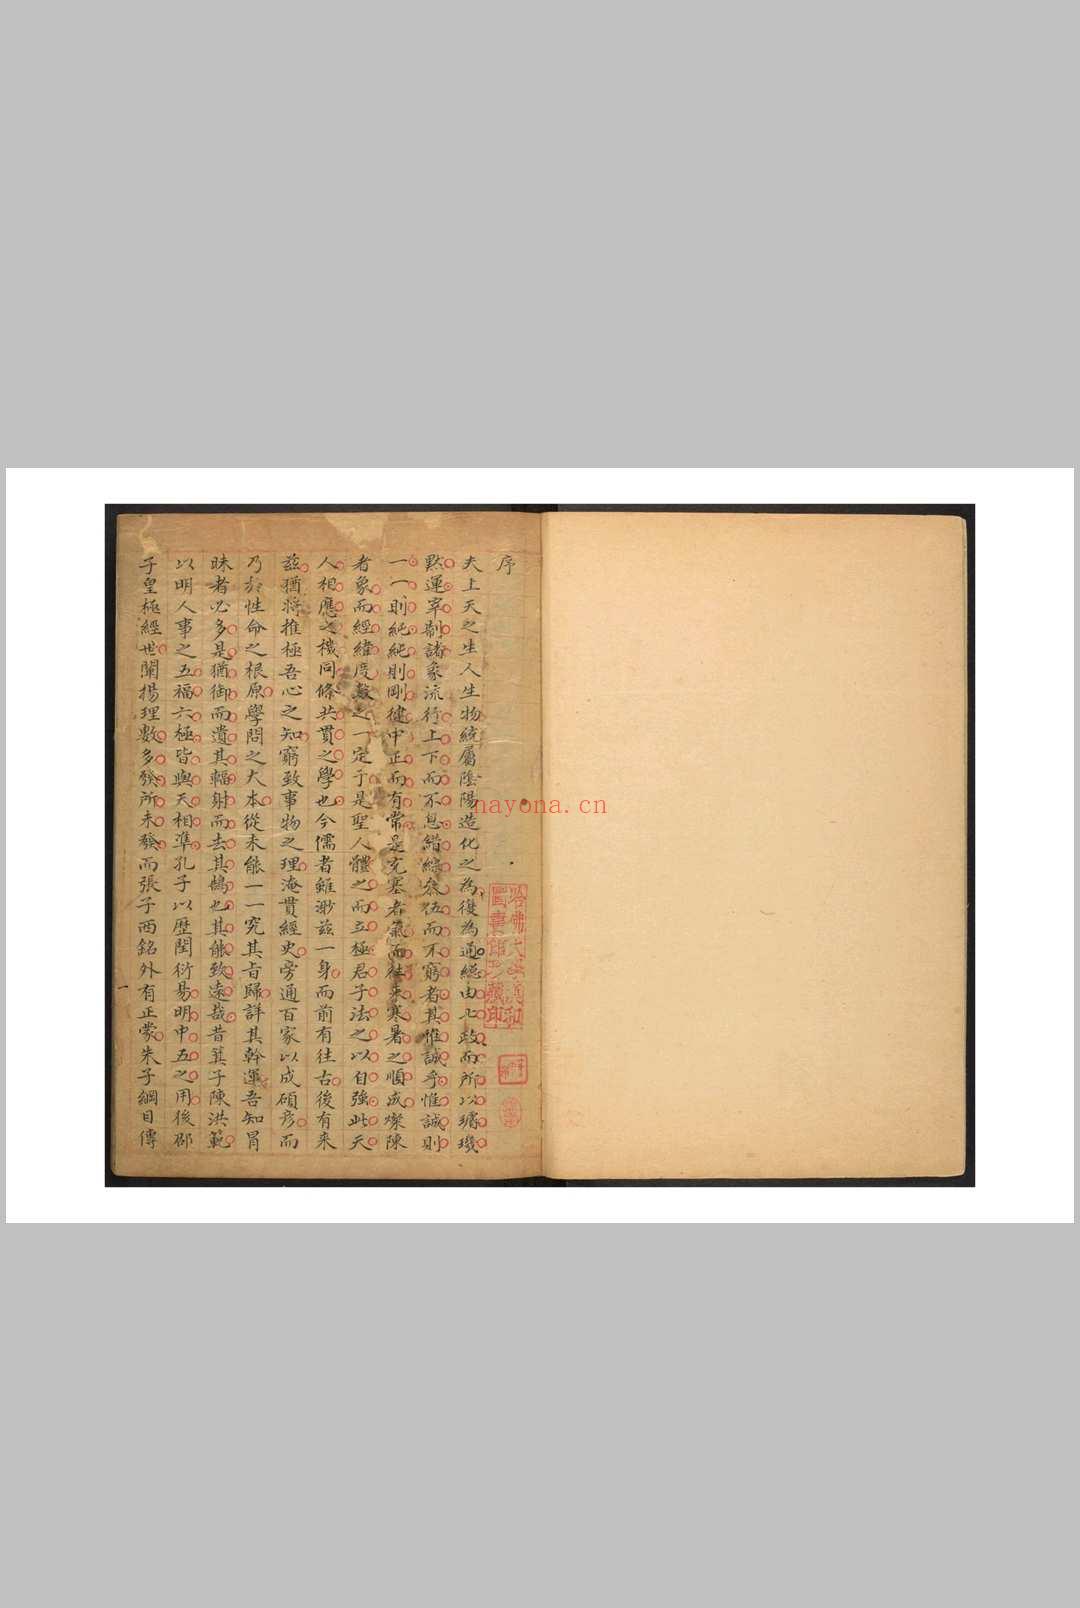 序
夫上天之生人生物統屬陰陽造化之為復為通緫由七政而所以璿璣
默運宰制諸象流行上下而不息錯綜叅伍而不窮者其惟誠乎惟誠則
一一則純純則剛健中正而有常是充塞者氣而往來寒暑之順成燦陳
者象而經緯度數之一定于是聖人體之而立極君子法之以自強此天
人相應之機同條共貫之學也今儒者雖渺茲一身而前有往古後有来
茲猶將推極吾心之知窮致事物之理淹貫經史旁通百家以成碩彥而
乃於性命之根原學問之大本從未能一一究其旨歸詳其幹運吾知冒
昧者必多是猶御而遺其輻射而去其鵠也其能致遠哉昔箕子陳洪範
以明人事之五福六極皆與天相準孔子以歷閏衍易明中五之用後邵
子皇極經世闡揚理數多發所未發而張子西銘外有正蒙朱子綱目傳
一
哈佛大學漢和
圖書館珍藏印
nayona.cn